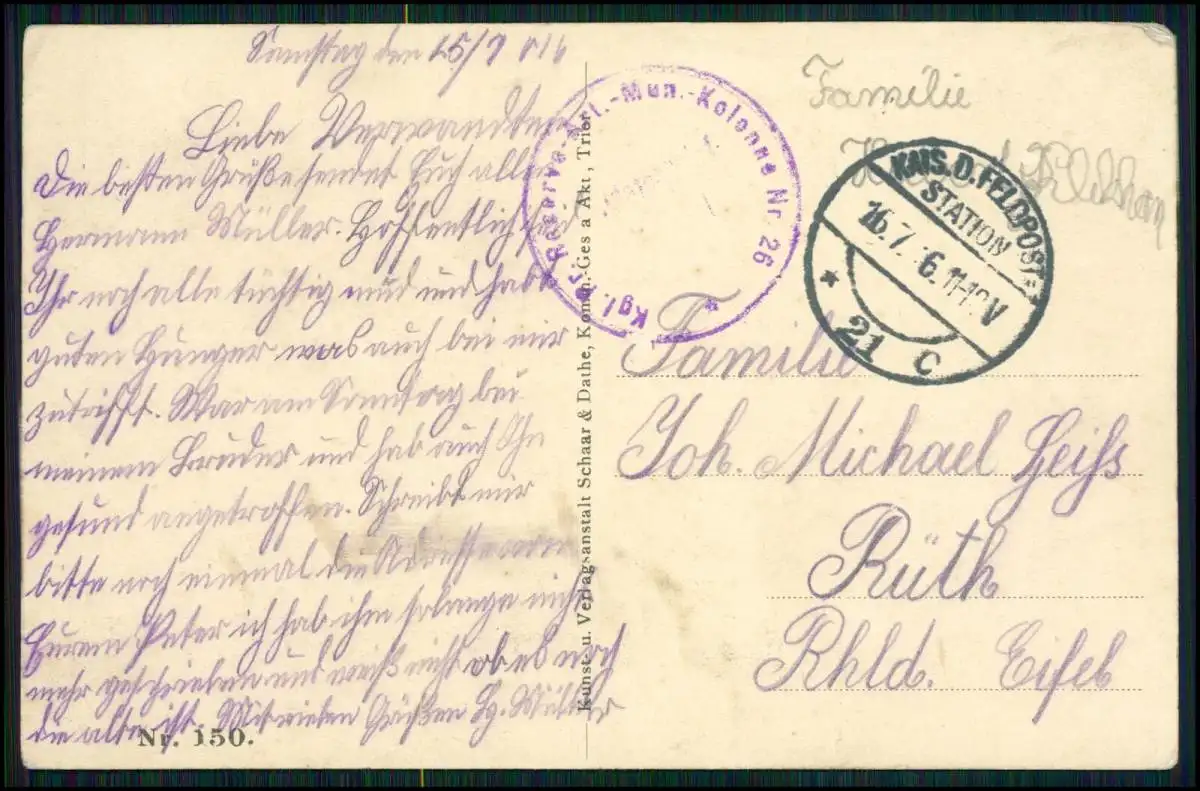 Samstag den 15/7 816
Liebe Verwandten
Die besten Grüße sendet Euch allen
Hermann Müller. Hoffentlich seid
Ihr noch alle tüchtig und habt
guten Hunger was auch bei mir
zutrifft. War am Sonntag bei
meinem Bruder und hab auch Ihn
gesund angetroffen. Schreibt mir
bitte noch einmal die Adresse von
Eurem Peter ich hab ihm solange nicht
mehr geschrieben und weiß nicht ob es noch
die alte ist. Mit vielen Grüßen Hr. Müller
Nr. 150.
Kunst- u. Verlagsanstalt Schaar & Dathe, Komm.-Ges a Akt, Trier
Kgl. Pr. Reserve-Art.-Mun.-Kolonne Nr. 26
KAIS. D. FELDPOST
STATION
16.7.16. 11-12 V
21 c
Familie
Familie
Joh. Michael Heiß
Rüth
Rhld. Eifel